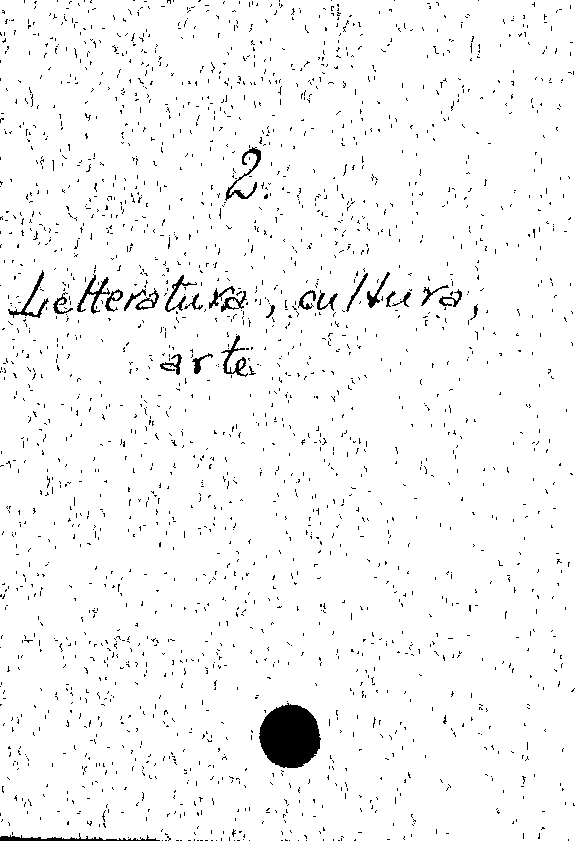 2.
Letteratura, cultura,
arte